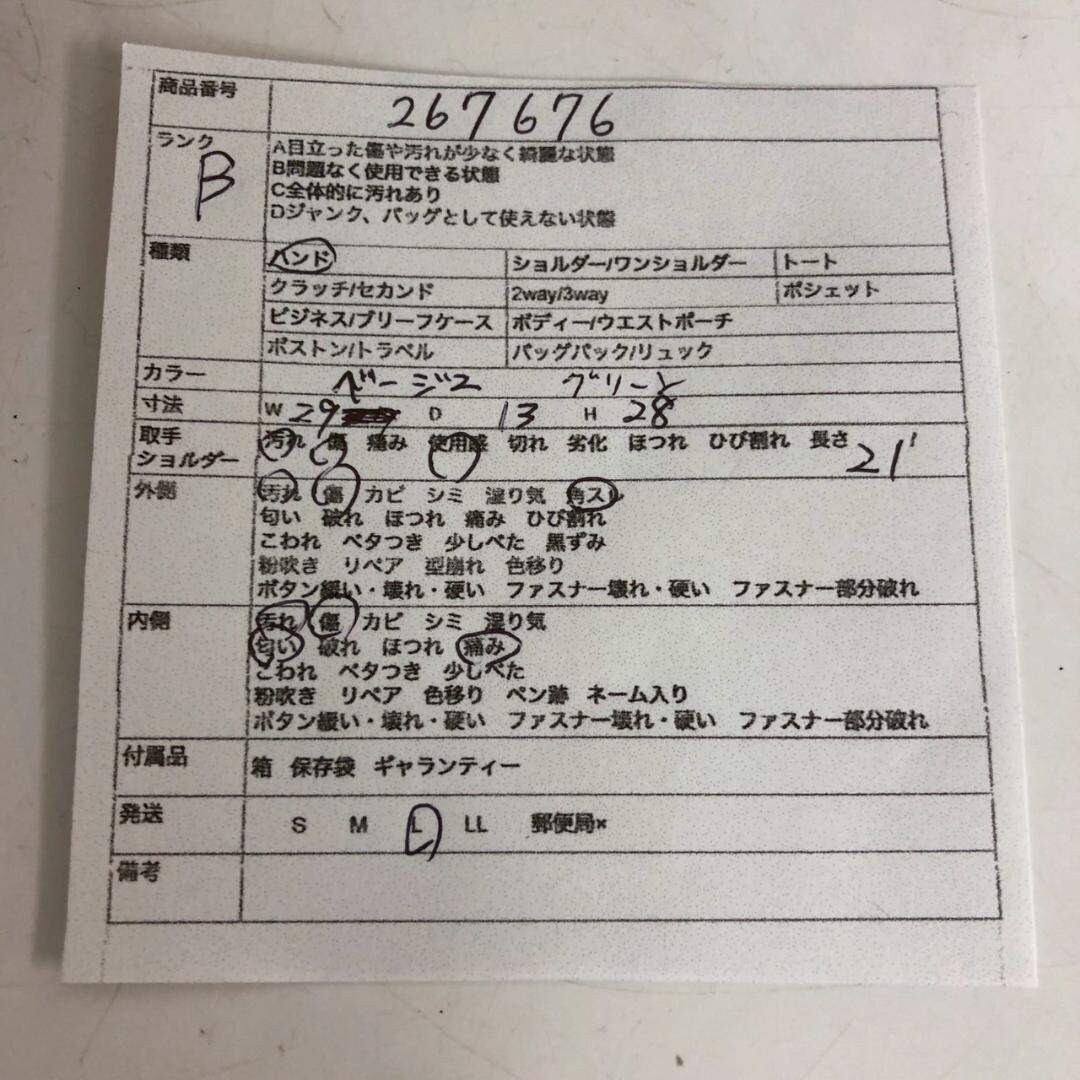 商品番号 267676
ランク B A目立った傷や汚れが少なく綺麗な状態
B問題なく使用できる状態
C全体的に汚れあり
Dジャンク、バッグとして使えない状態
種類 ハンド ショルダー/ワンショルダー トート
クラッチ/セカンド 2way/3way ポシェット
ビジネス/ブリーフケース ボディー/ウエストポーチ
ボストン/トラベル バッグパック/リュック
カラー ベージュ グリーン
寸法 W 29 D 13 H 28
取手 汚れ 傷 痛み 使用感 切れ 劣化 ほつれ ひび割れ 長さ 21
ショルダー
外側 汚れ 傷 カビ シミ 湿り気 角スレ
匂い 破れ ほつれ 痛み ひび割れ
こわれ ベタつき 少しべた 黒ずみ
粉吹き リペア 型崩れ 色移り
ボタン緩い・壊れ・硬い ファスナー壊れ・硬い ファスナー部分破れ
内側 汚れ 傷 カビ シミ 湿り気
匂い 破れ ほつれ 痛み
こわれ ベタつき 少しべた
粉吹き リペア 色移り ペン跡 ネーム入り
ボタン緩い・壊れ・硬い ファスナー壊れ・硬い ファスナー部分破れ
付属品 箱 保存袋 ギャランティー
発送 S M L LL 郵便局×
備考